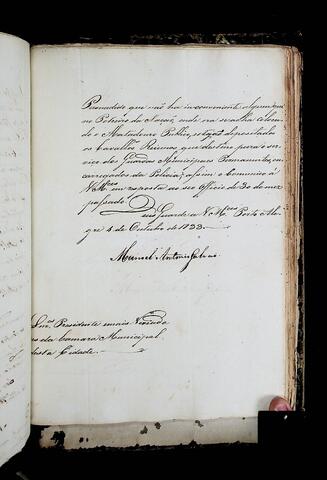 Persuadido que não ha inconveniente algum que
no Potreiro da Nação, onde na varlha colocado
o Matadouro Publico, sejão depositados
os Cavallos Reunos, que destino para o ser-
viço dos Guardas Municipaes Permanentes, en-
carregados da Policia; assim o communico á
V. M.ces em resposta ao seo Officio de 30 do mez
passado.
Deus Guarde a V. M.ces Porto Ale-
gre 4 de Outubro de 1833.
Manoel Antonio Galvão
Snr.s Presidente e mais Vereado-
es da Camara Municipal
desta Cidade.